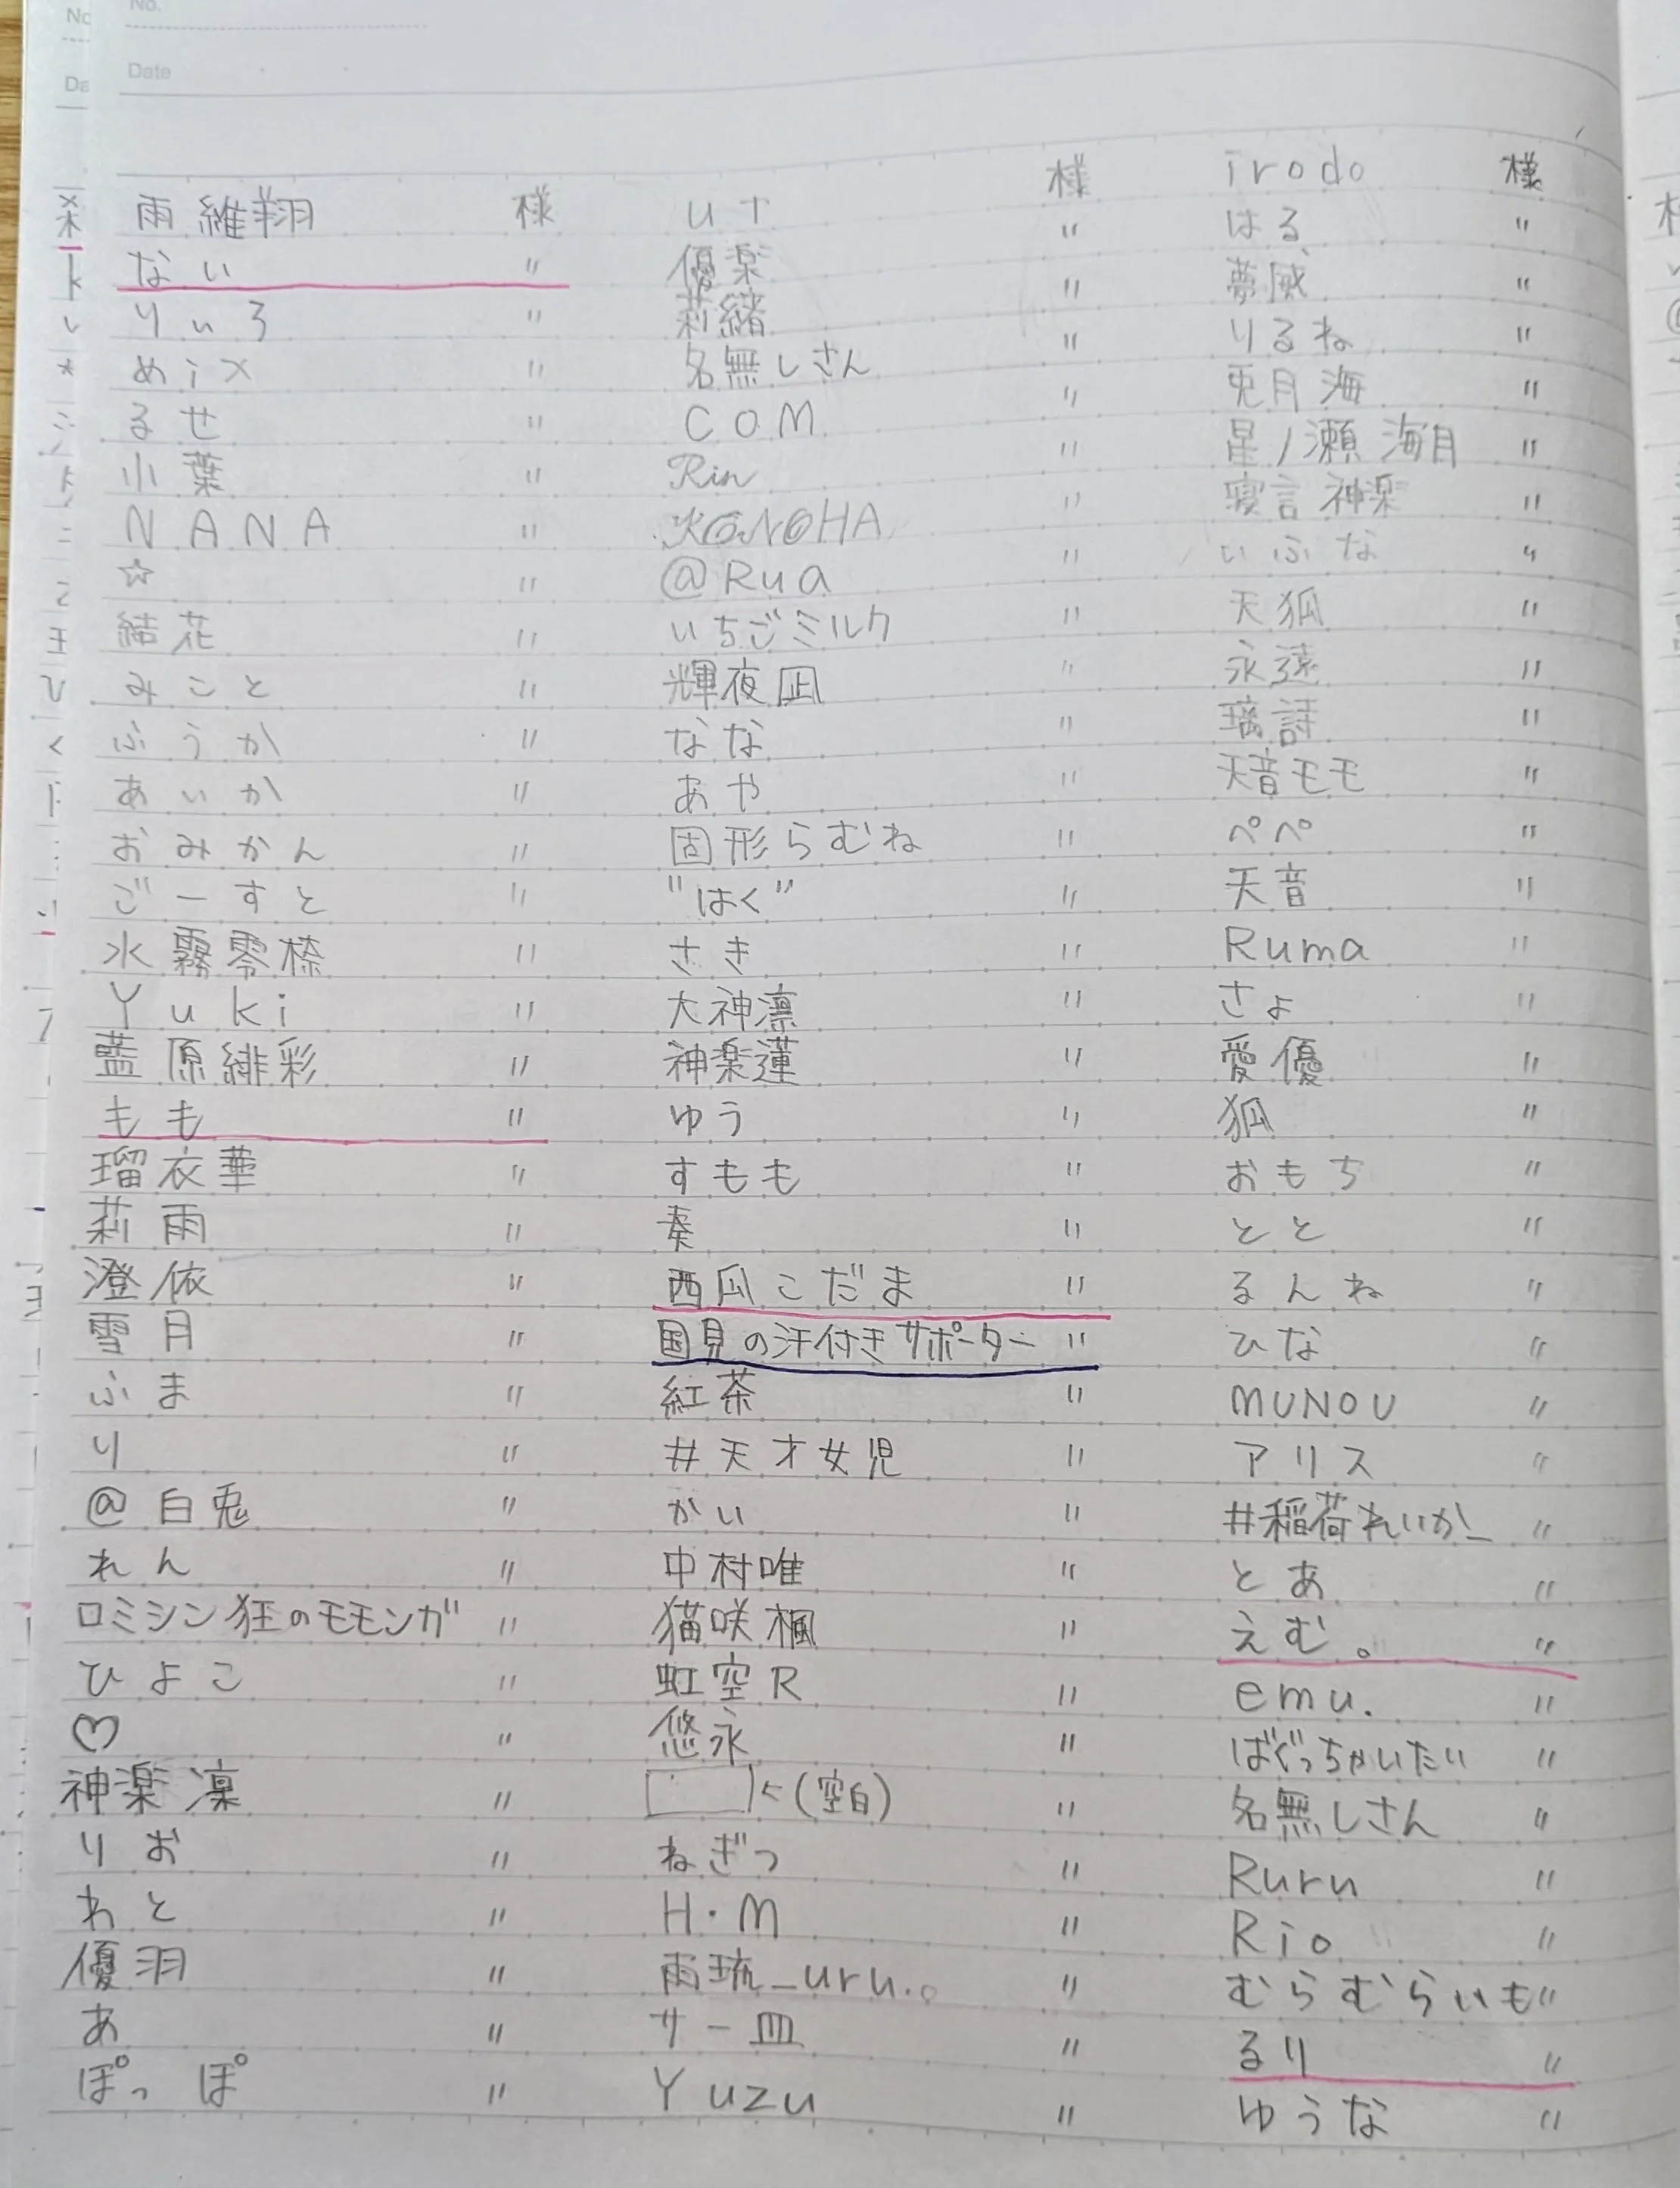 No.
Date
雨維翔 様
ない 〃
りぃろ 〃
めix 〃
るせ 〃
小葉 〃
NANA 〃
☆ 〃
結花 〃
みこと 〃
ふうか 〃
あいか 〃
おみかん 〃
ごーすと 〃
水霧零 〃
Yuki 〃
藍原緋彩 〃
もも 〃
瑠衣華 〃
莉雨 〃
澄依 〃
雪月 〃
ふま 〃
り 〃
@白兎 〃
れん 〃
ロミシン狂のモモンガ 〃
ひよこ 〃
♡ 〃
神楽凛 〃
りお 〃
わと 〃
優羽 〃
あ 〃
ぽっぽ 〃
uт 様
優楽 〃
莉緒 〃
名無しさん 〃
COM 〃
Rin 〃
KONOHA 〃
@Rua 〃
いちごミルク 〃
輝夜凪 〃
なな 〃
あや 〃
固形らむね 〃
"はく" 〃
さき 〃
大神凛 〃
神楽蓮 〃
ゆう 〃
すもも 〃
奏 〃
西瓜こだま 〃
国見の汗付きサポーター 〃
紅茶 〃
#天才女児 〃
かい 〃
中村唯 〃
猫咲楓 〃
虹空R 〃
悠永 〃
□<(空白) 〃
ねぎっ 〃
H・M 〃
雨琉_uru.。 〃
サー皿 〃
Yuzu 〃
irodo 様
はる 〃
夢威 〃
りるね 〃
兎月海 〃
星ノ瀬 海月 〃
寝言神楽 〃
いふな 〃
天狐 〃
永遠 〃
璃詩 〃
天音モモ 〃
ぺぺ 〃
天音 〃
Ruma 〃
さよ 〃
愛優 〃
狐 〃
おもち 〃
とと 〃
るんね 〃
ひな 〃
MUNOU 〃
アリス 〃
#稲荷れいか_ 〃
とあ 〃
えむ。 〃
emu. 〃
ばぐっちかいたい 〃
名無しさん 〃
Ruru 〃
Rio 〃
むらむらいも 〃
るり 〃
ゆうな 〃